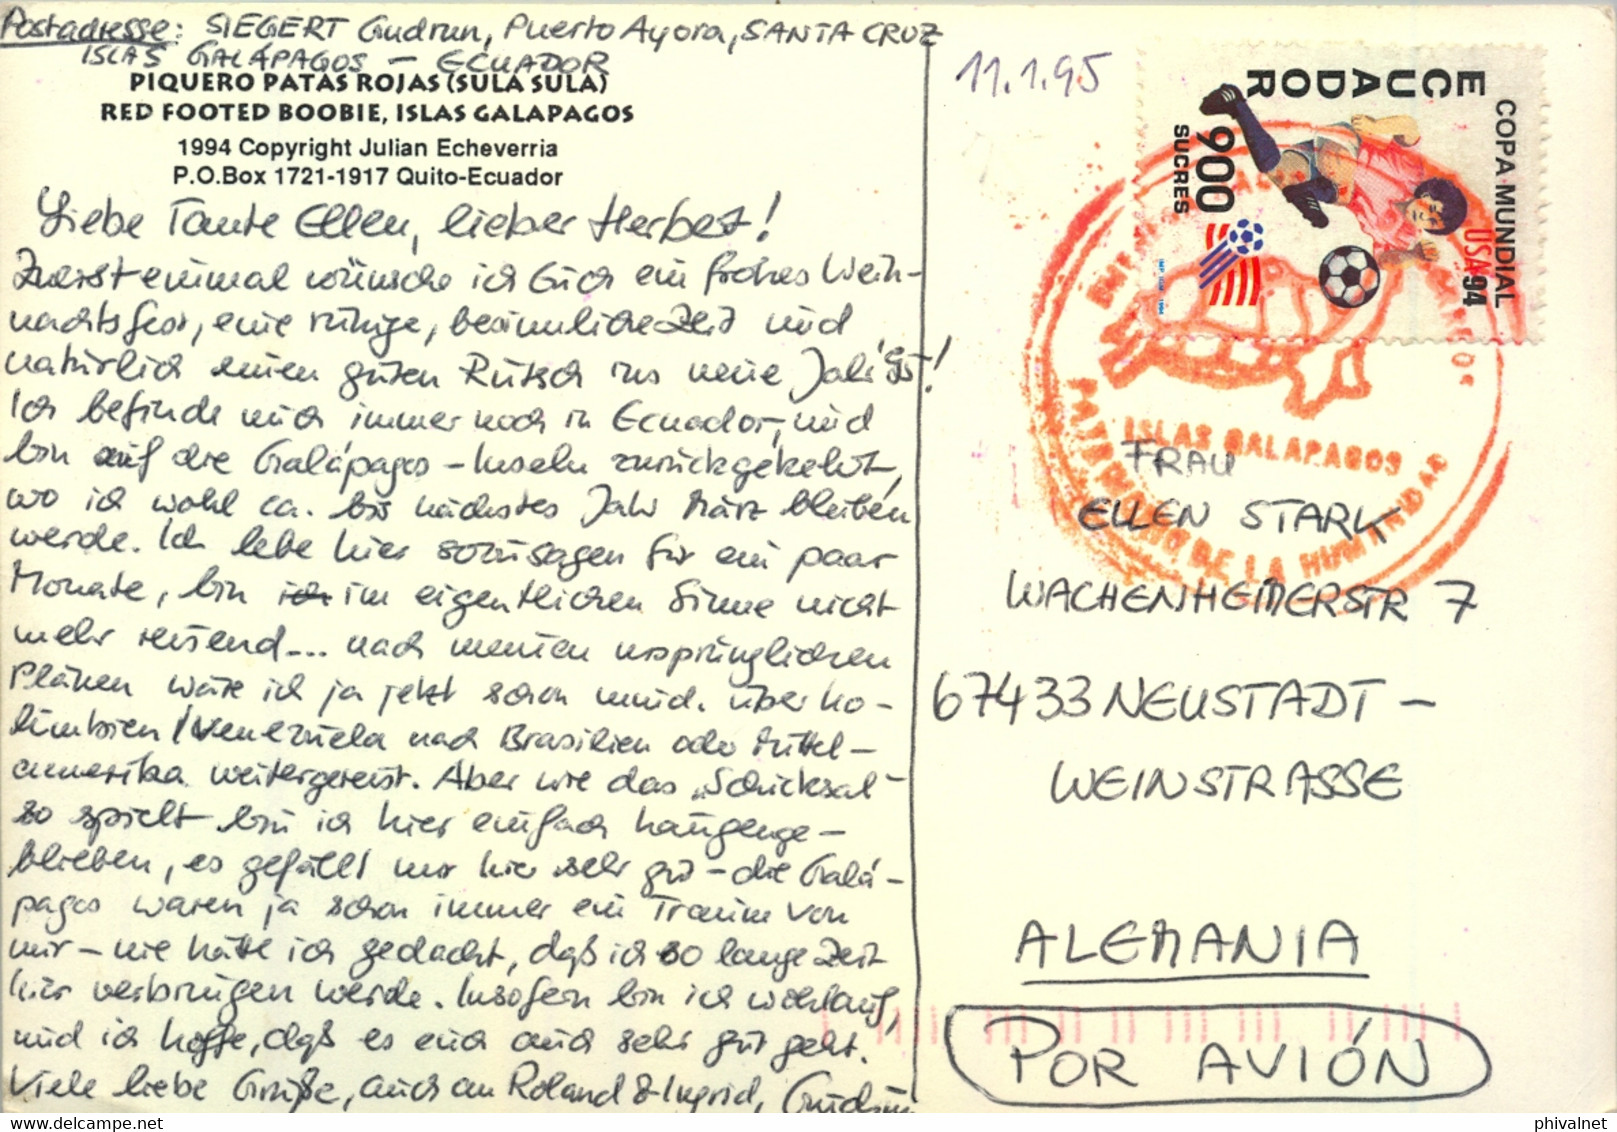 Postadresse: SIEGERT Gudrun, Puerto Ayora, SANTA CRUZ
ISLAS GALÁPAGOS — ECUADOR
PIQUERO PATAS ROJAS (SULA SULA)
RED FOOTED BOOBIE, ISLAS GALAPAGOS
1994 Copyright Julian Echeverria
P.O.Box 1721-1917 Quito-Ecuador
Liebe Tante Ellen, lieber Herbert!
Zuerst einmal wünsche ich Euch ein frohes Weih-
nachtsfest, eine ruhige, besinnliche Zeit und
natürlich einen guten Rutsch ins neue Jahr '95!
Ich befinde mich immer noch in Ecuador, und
bin auf die Galápagos-Inseln zurückgekehrt,
wo ich wohl ca. bis nächstes Jahr März bleiben
werde. Ich lebe hier sozusagen für ein paar
Monate, bin ich im eigentlichen Sinne nicht
mehr reisend... nach meinen ursprünglichen
Plänen wäre ich ja jetzt schon mind. über Ko-
lumbien/Venezuela nach Brasilien oder Mittel-
amerika weitergereist. Aber wie das „Schicksal"
so spielt bin ich hier einfach hängenge-
blieben, es gefällt mir hier sehr gut - die Galá-
pagos waren ja schon immer ein Traum von
mir - nie hätte ich gedacht, daß ich so lange Zeit
hier verbringen werde. Insofern bin ich wohlauf,
und ich hoffe, daß es euch auch sehr gut geht.
Viele liebe Grüße, auch an Roland & Ingrid, Gudrun
11.1.95
ECUADOR
COPA MUNDIAL
USA 94
900
SUCRES
ISLAS GALAPAGOS
PATRIMONIO DE LA HUMANIDAD
FRAU
ELLEN STARK
WACHENHEIMERSTR 7
67433 NEUSTADT -
WEINSTRASSE
ALEMANIA
POR AVIÓN
www.delcampe.net
phivalnet